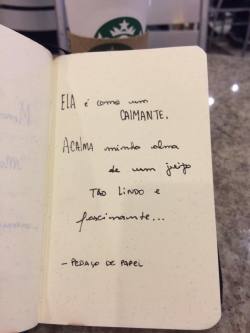 ELA é como um
CALMANTE.
ACALMA minha alma
de um jeito
TÃO LINDO e
fascinante...
- PEDAÇO DE PAPEL